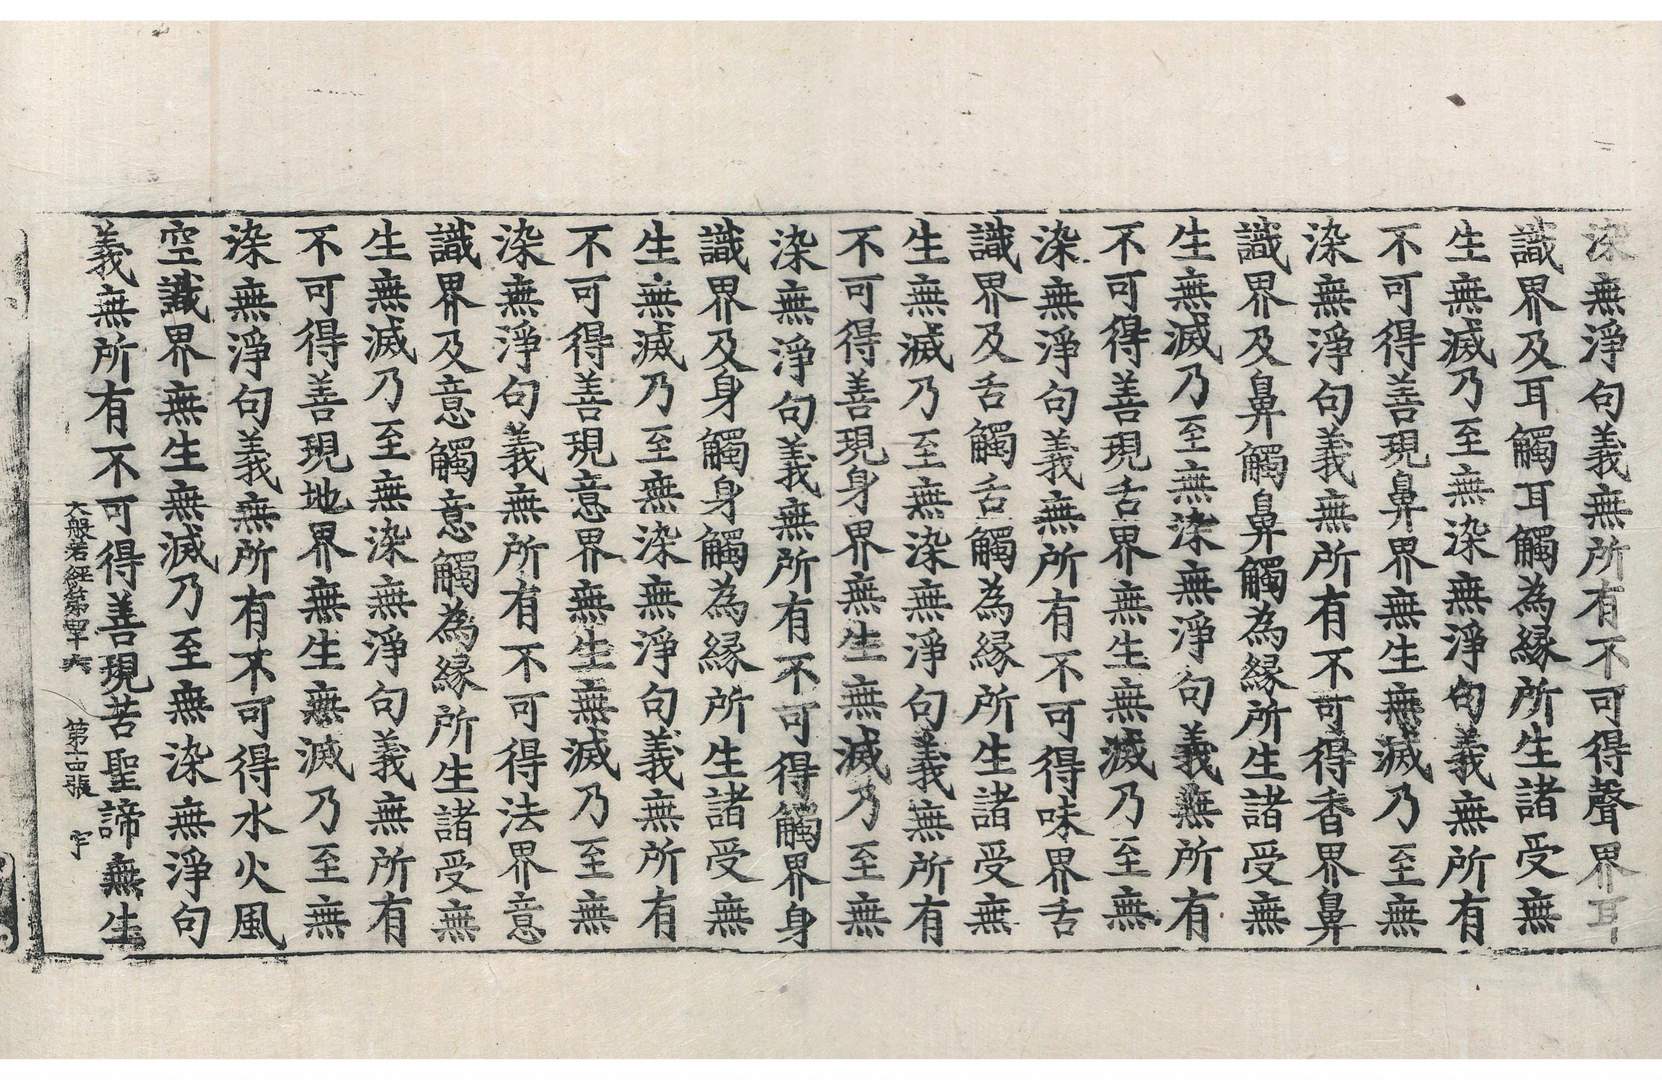 染無淨句義無所有不可得聲界耳
識界及耳觸耳觸為縁所生諸受無
生無滅乃至無染無淨句義無所有
不可得善現鼻界無生無滅乃至無
染無淨句義無所有不可得香界鼻
識界及鼻觸鼻觸為縁所生諸受無
生無滅乃至無染無淨句義無所有
不可得善現舌界無生無滅乃至無
染無淨句義無所有不可得味界舌
識界及舌觸舌觸為縁所生諸受無
生無滅乃至無染無淨句義無所有
不可得善現身界無生無滅乃至無
染無淨句義無所有不可得觸界身
識界及身觸身觸為縁所生諸受無
生無滅乃至無染無淨句義無所有
不可得善現意界無生無滅乃至無
染無淨句義無所有不可得法界意
識界及意觸意觸為縁所生諸受無
生無滅乃至無染無淨句義無所有
不可得善現地界無生無滅乃至無
染無淨句義無所有不可得水火風
空識界無生無滅乃至無染無淨句
義無所有不可得善現苦聖諦無生
大般若經第四十六 第十四張 宇